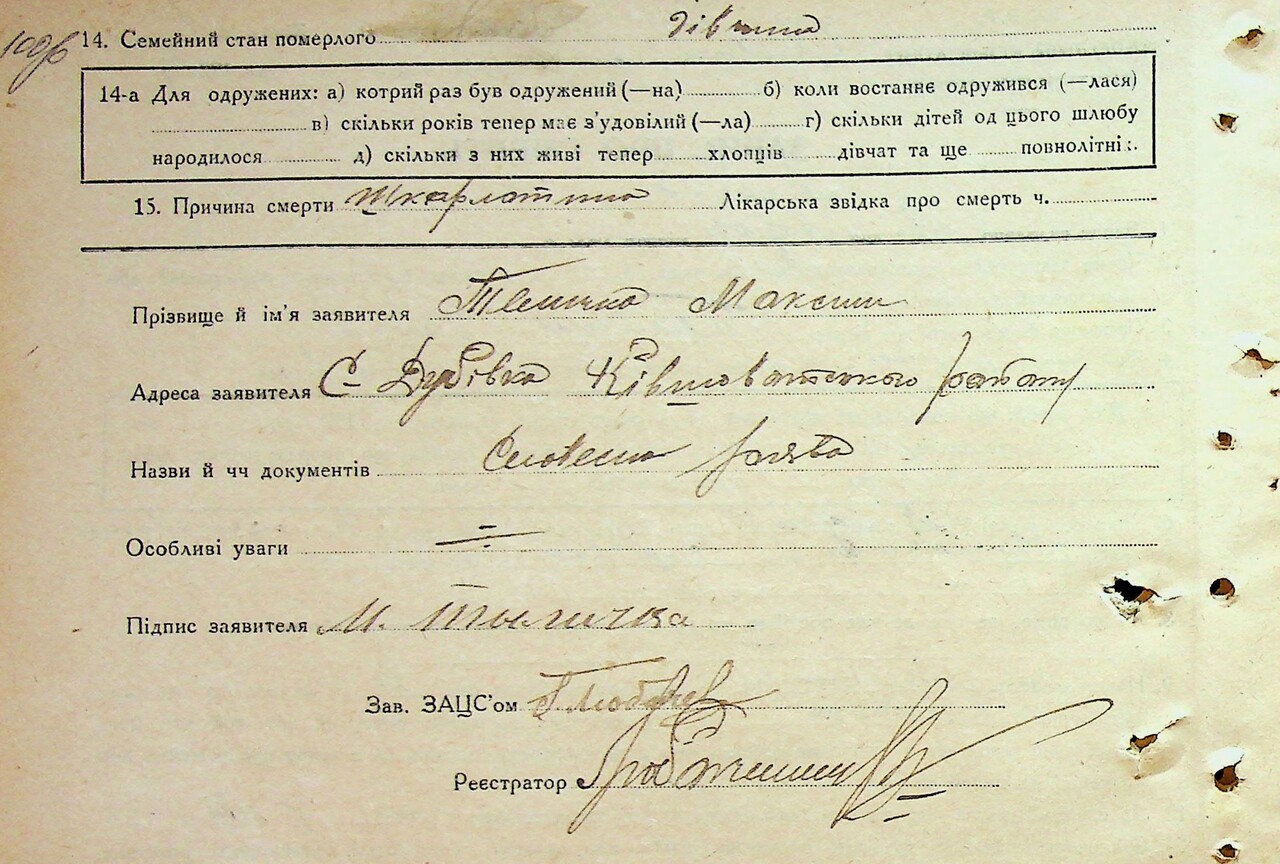 14. Семейний стан померлого дівчина
14-а Для одружених: а) котрий раз був одружений (—на) б) коли востаннє одружився (—лася)
в) скільки років тепер має з'удовілий (—ла) г) скільки дітей од цього шлюбу
народилося д) скільки з них живі тепер хлопців дівчат та ще повнолітні:.
15. Причина смерти Шкарлатина Лікарська звідка про смерть ч.
Прізвище й ім'я заявителя Максим
Адреса заявителя С. Дубівка Ківшоватського району
Назви й чч документів Словесна заява
Особливі уваги
Підпис заявителя М.
Зав. ЗАЦС'ом
Реєстратор